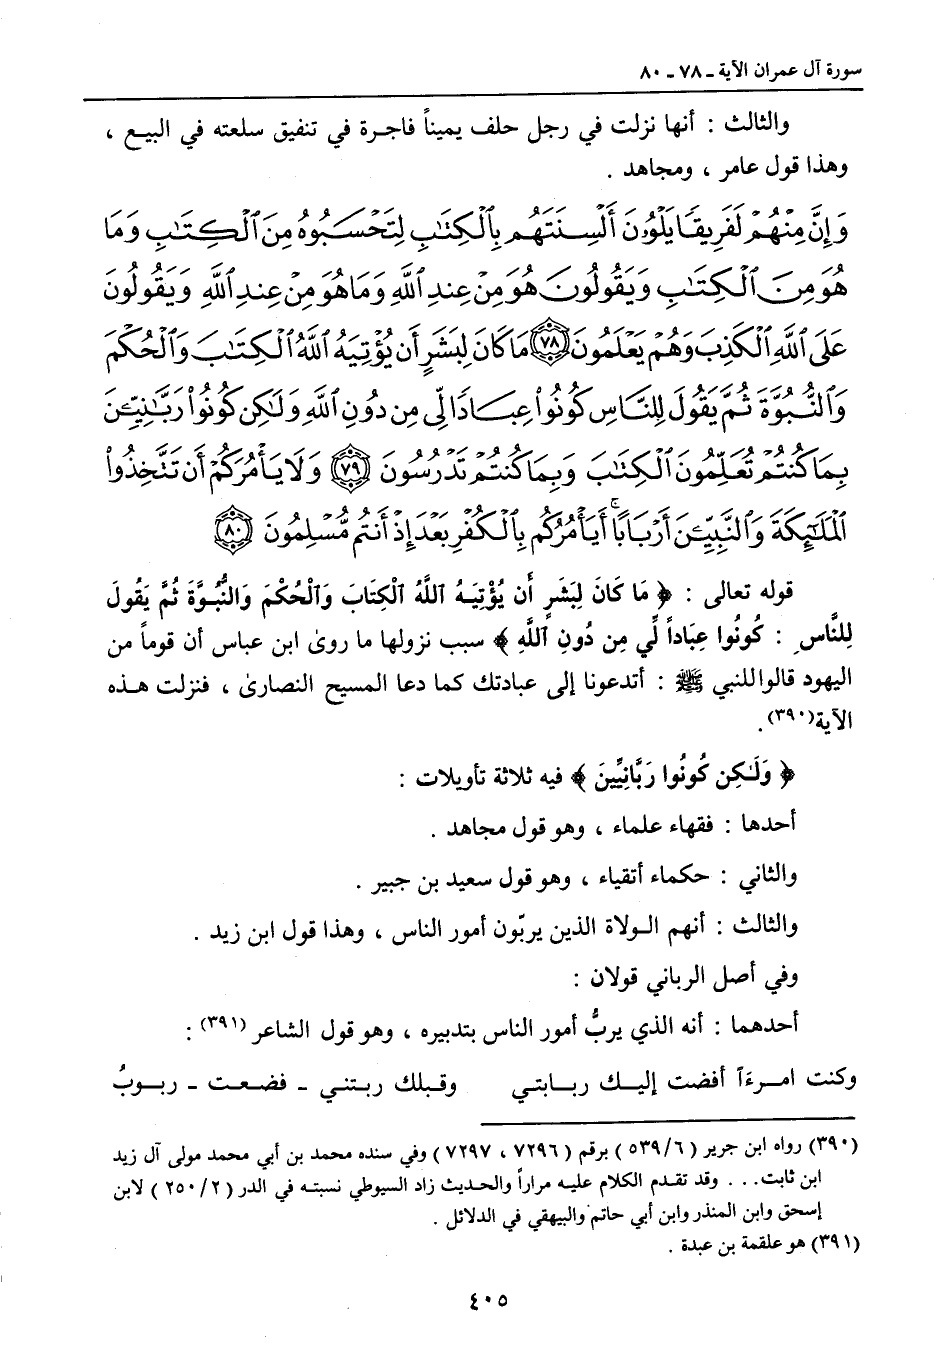 سورة آل عمران الآية ـ ٧٨ ـ ٨٠
والثالث : أنها نزلت في رجل حلف يميناً فاجرة في تنفيق سلعته في البيع ،
وهذا قول عامر ، ومجاهد .
وَإِنَّ مِنْهُمْ لَفَرِيقًا يَلْوُۥنَ أَلْسِنَتَهُم بِٱلْكِتَـٰبِ لِتَحْسَبُوهُ مِنَ ٱلْكِتَـٰبِ وَمَا
هُوَ مِنَ ٱلْكِتَـٰبِ وَيَقُولُونَ هُوَ مِنْ عِندِ ٱللَّهِ وَمَا هُوَ مِنْ عِندِ ٱللَّهِ وَيَقُولُونَ
عَلَى ٱللَّهِ ٱلْكَذِبَ وَهُمْ يَعْلَمُونَ ٧٨ مَا كَانَ لِبَشَرٍ أَن يُؤْتِيَهُ ٱللَّهُ ٱلْكِتَـٰبَ وَٱلْحُكْمَ
وَٱلنُّبُوَّةَ ثُمَّ يَقُولَ لِلنَّاسِ كُونُوا۟ عِبَادًا لِّى مِن دُونِ ٱللَّهِ وَلَـٰكِن كُونُوا۟ رَبَّـٰنِيِّـۧنَ
بِمَا كُنتُمْ تُعَلِّمُونَ ٱلْكِتَـٰبَ وَبِمَا كُنتُمْ تَدْرُسُونَ ٧٩ وَلَا يَأْمُرَكُمْ أَن تَتَّخِذُوا۟
ٱلْمَلَـٰٓئِكَةَ وَٱلنَّبِيِّـۧنَ أَرْبَابًا ۚ أَيَأْمُرُكُم بِٱلْكُفْرِ بَعْدَ إِذْ أَنتُم مُّسْلِمُونَ ٨٠
قوله تعالى : ﴿ مَا كَانَ لِبَشَرٍ أَن يُؤْتِيَهُ ٱللَّهُ ٱلْكِتَابَ وَٱلْحُكْمَ وَالنُّبُوَّةَ ثُمَّ يَقُولَ
لِلنَّاسِ : كُونُوا عِبَاداً لِّي مِن دُونِ ٱللَّهِ ﴾ سبب نزولها ما روىٰ ابن عباس أن قوماً من
اليهود قالوا للنبي ﷺ : أتدعونا إلى عبادتك كما دعا المسيح النصارىٰ ، فنزلت هذه
الآية(٣٩٠).
﴿ وَلَـٰكِن كُونُوا رَبَّانِيِّينَ ﴾ فيه ثلاثة تأويلات :
أحدها : فقهاء علماء ، وهو قول مجاهد .
والثاني : حكماء أتقياء ، وهو قول سعيد بن جبير .
والثالث : أنهم الـولاة الذين يربّون أمور الناس ، وهذا قول ابن زيد .
وفي أصل الرباني قولان :
أحدهما : أنه الذي يربُّ أمور الناس بتدبيره ، وهو قول الشاعر (٣٩١) :
وكنت امـرءَآ أفضت إليـك ربـابتي وقبلك ربـتني - فضـعت - ربـوبُ
(٣٩٠) رواه ابن جرير ( ٥٣٩/٦ ) برقم ( ٧٢٩٦ ، ٧٢٩٧ ) وفي سنده محمد بن أبي محمد مولى آل زيد
ابن ثابت... وقد تقدم الكلام عليه مراراً والحديث زاد السيوطي نسبتـه في الدر ( ٢٥٠/٢ ) لابن
إسحق وابن المنذر وابن أبي حاتم والبيهقي في الدلائل .
(٣٩١) هو علقمة بن عبدة .
٤٠٥